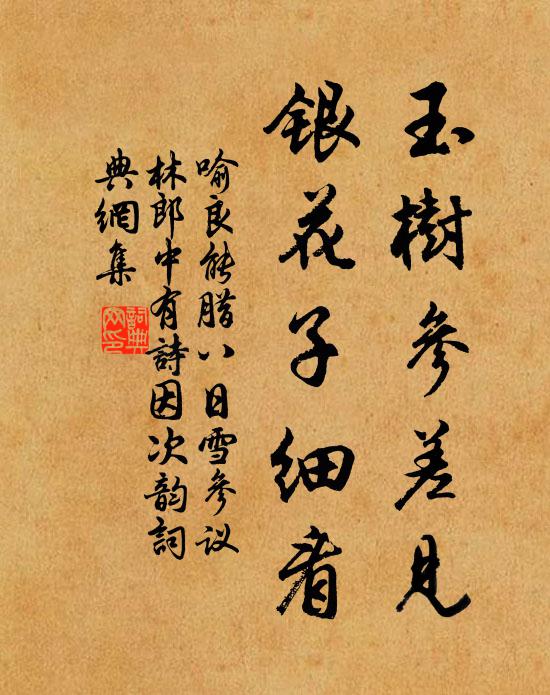 玉樹參差見
銀花子細看
喻良能腊八日雪參议
林郎中有詩因次韵詞
典網集
詞典網印